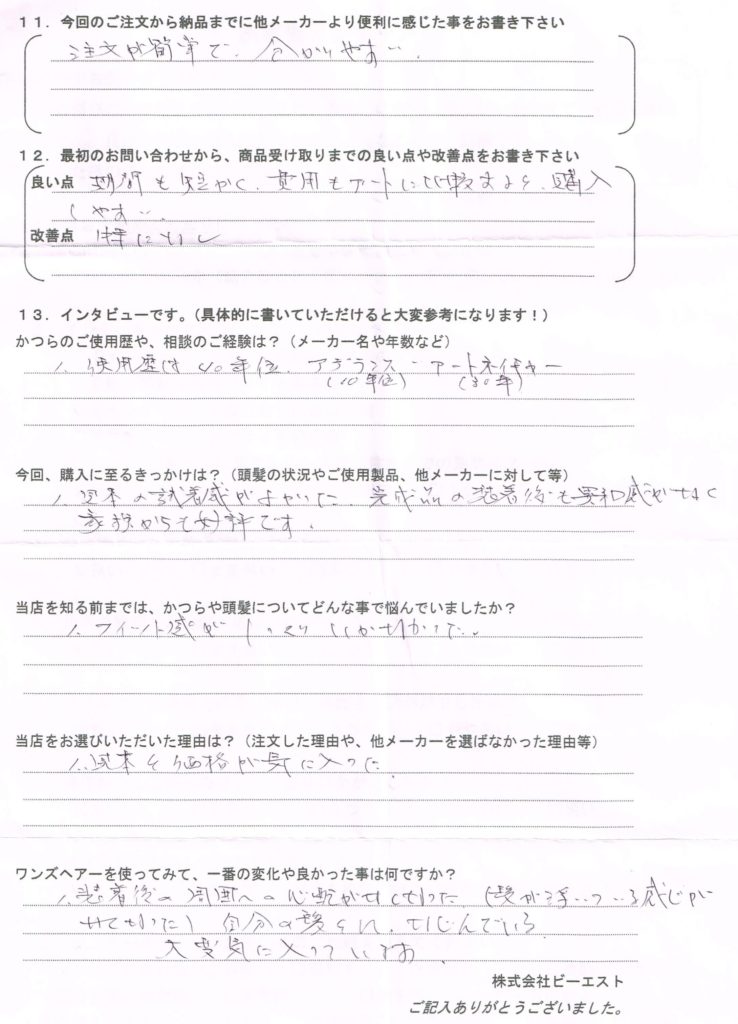 11．今回のご注文から納品までに他メーカーより便利に感じた事をお書き下さい
注文が簡単で、分かりやすい、
12．最初のお問い合わせから、商品受け取りまでの良い点や改善点をお書き下さい
良い点 期間も短かく、費用もアートに比較すると、購入
しやすい、
改善点 特になし
13．インタビューです。（具体的に書いていただけると大変参考になります！）
かつらのご使用歴や、相談のご経験は？（メーカー名や年数など）
1. 使用歴は40年位、アデランス・アートネイチャー
(10年位) (30年)
今回、購入に至るきっかけは？（頭髪の状況やご使用製品、他メーカーに対して等）
1. 見本の試着感がよかった、完成品の装着後も異和感がなく
家族からも好評です。
当店を知る前までは、かつらや頭髪についてどんな事で悩んでいましたか？
1. フィット感がしっくりいかなかった。
当店をお選びいただいた理由は？（注文した理由や、他メーカーを選ばなかった理由等）
1. 見本と価格が気に入った
ワンズヘアーを使ってみて、一番の変化や良かった事は何ですか？
1. 装着後の周囲への心配がなくなった（髪が浮いている感じが
なくなった）自分の髪と なじんでいる
大変気に入っています
株式会社ビーエスト
ご記入ありがとうございました。